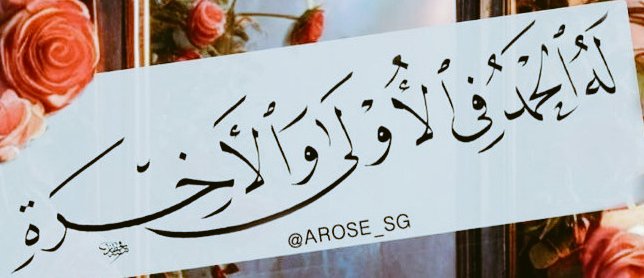 لَهُ ٱلْحَمْدُ فِى ٱلْأُوْلَىٰ وَٱلْأَخِرَةِ
@AROSE_SG